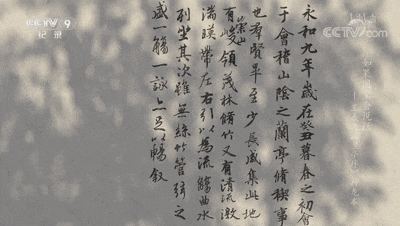 CCTV 9
纪录
CCTV.com
永和九年歲在癸丑暮春之初會
于會稽山陰之蘭亭脩稧事
也羣賢畢至少長咸集此地
有崇山峻領茂林脩竹又有清流激
湍暎帶左右引以為流觴曲水
列坐其次雖無絲竹管弦之
盛一觴一詠亦足以暢敘